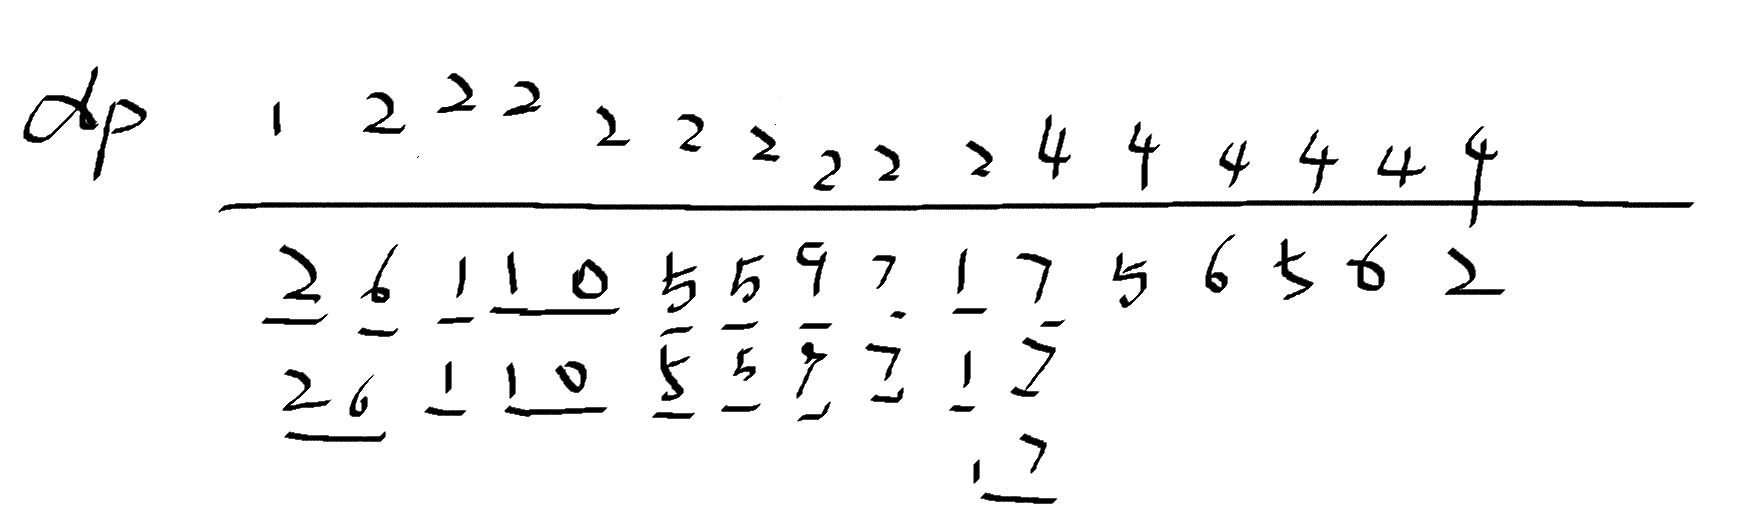 dp 1 2 2 2 2 2 2 2 2 2 4 4 4 4 4 4
2 6 1 1 0 5 5 9 7 1 7 5 6 5 6 2
2 6 1 1 0 5 5 9 7 1 7
1 7